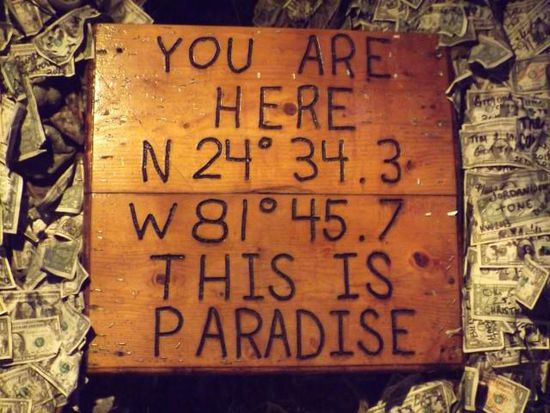 YOU ARE
HERE
N 24° 34.3
W 81° 45.7
THIS IS
PARADISE